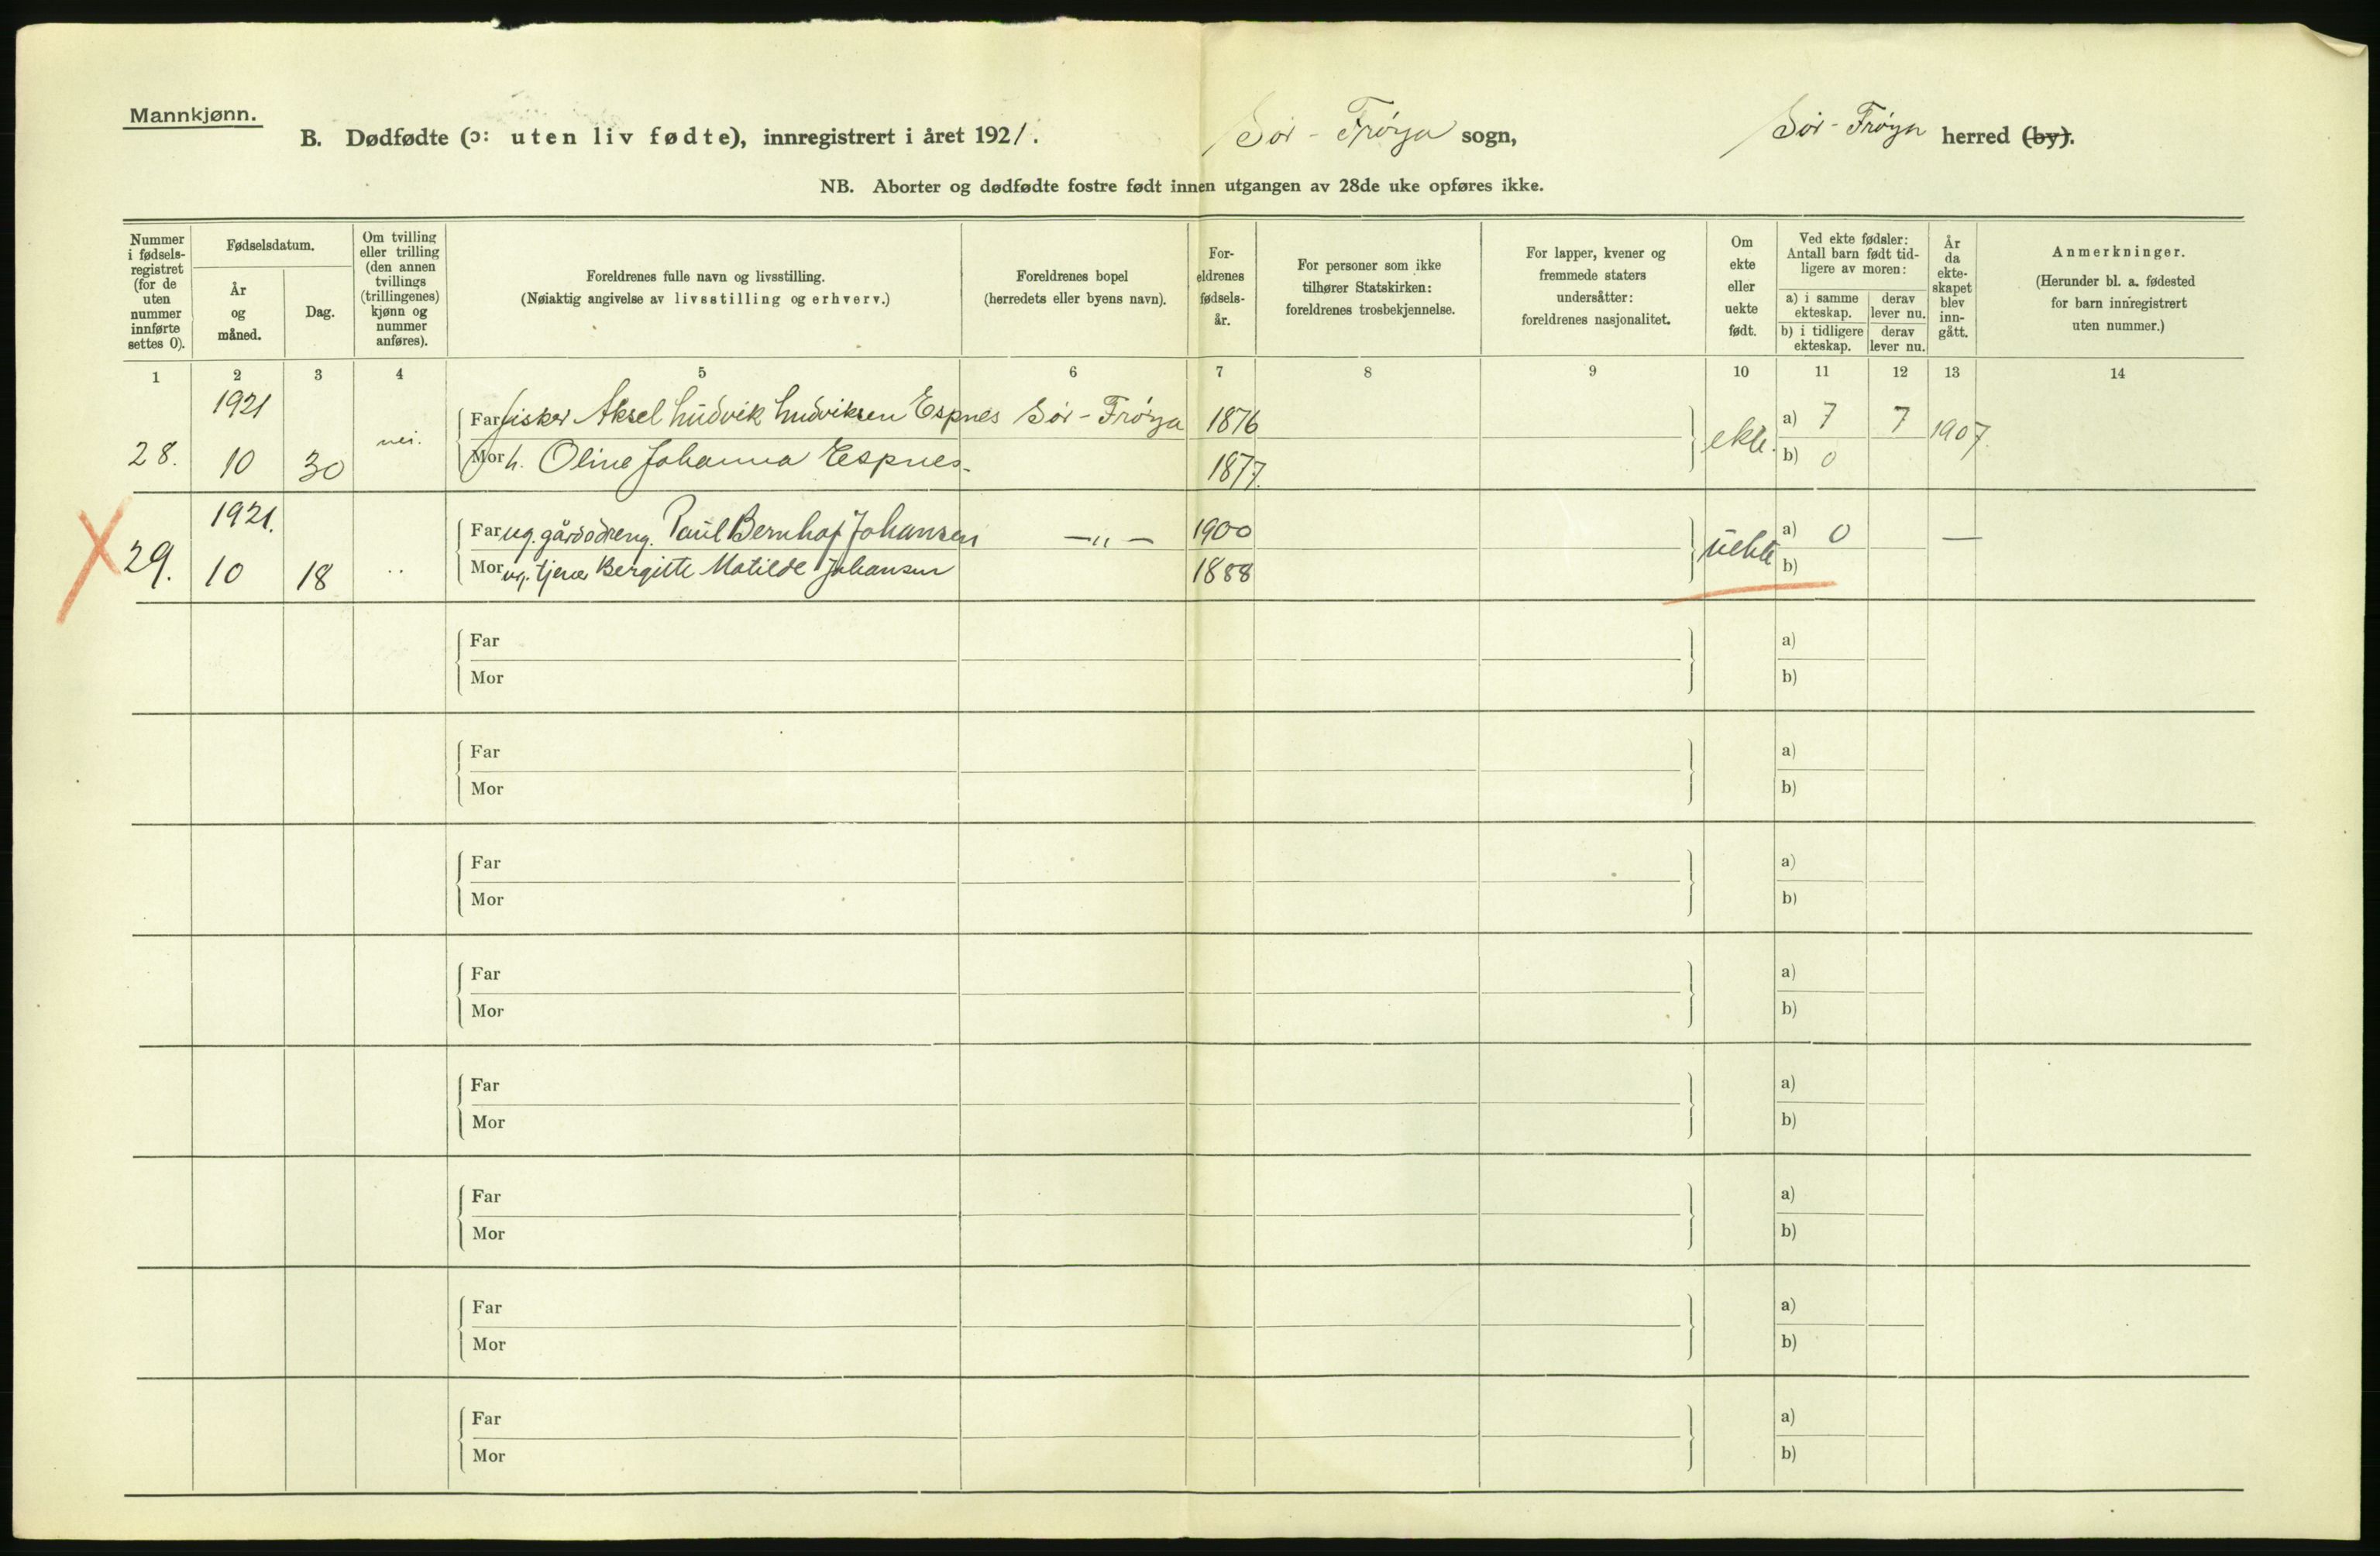 Mannkjønn.
B. Dødfødte (ɔ: uten liv fødte), innregistrert i året 1921. Sör - Fröya sogn, Sör - Fröya herred (by).
NB. Aborter og dødfødte fostre født innen utgangen av 28de uke opføres ikke.
Nummer
i fødsels-
registret
(for de
uten
nummer
innførte
settes 0).
Fødselsdatum.
År
og
måned.
Dag.
Om tvilling
eller trilling
(den annen
tvillings
(trillingenes)
kjønn og
nummer
anføres).
Foreldrenes fulle navn og livsstilling.
(Nøiaktig angivelse av livsstilling og erhverv.)
Foreldrenes bopel
(herredets eller byens navn).
For-
eldrenes
fødsels-
år.
For personer som ikke
tilhører Statskirken:
foreldrenes trosbekjennelse.
For lapper, kvener og
fremmede staters
undersåtter:
foreldrenes nasjonalitet.
Om
ekte
eller
uekte
født.
Ved ekte fødsler:
Antall barn født tid-
ligere av moren:
a) i samme
ekteskap.
derav
lever nu.
b) i tidligere
ekteskap.
derav
lever nu.
År
da
ekte-
skapet
blev
inn-
gått.
Anmerkninger.
(Herunder bl. a. fødested
for barn innregistrert
uten nummer.)
1 2 3 4 5 6 7 8 9 10 11 12 13 14
1921
Far fisker Aksel Ludvik Ludviksen Espnes Sör - Fröya 1876 a) 7 7
28. 10 30 nei. ekte. 1907.
Mor h. Oline Johanna Espnes. 1877. b) 0
1921.
Far ug. gårdsdreng. Paul Bernhof Johansen —„— 1900 a) 0 —
29. 10 18 .. uekte
Mor ug. tjener Bergitte Matilde Johansen 1888 b)
Far a)
Mor b)
Far a)
Mor b)
Far a)
Mor b)
Far a)
Mor b)
Far a)
Mor b)
Far a)
Mor b)
Far a)
Mor b)
Far a)
Mor b)